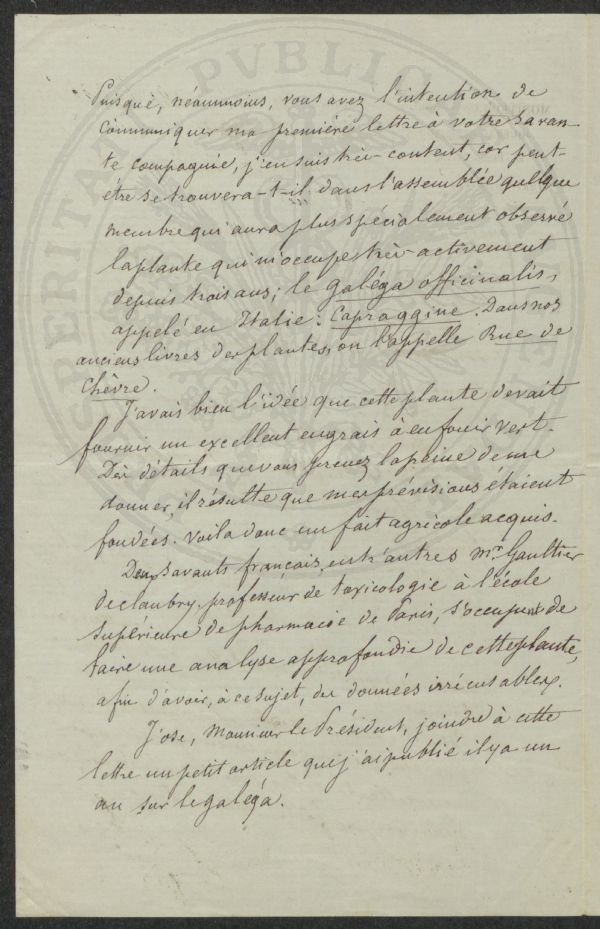 Puisque, néanmoins, vous avez l'intention de
communiquer ma première lettre à votre savan-
te compagnie, j'en suis très-content, car peut-
être se trouvera-t-il dans l'assemblée quelque
membre qui aura plus spécialement observé
la plante qui m'occupe très-activement
depuis trois ans; le galéga officinalis,
appelé en Italie: Capraggine. Dans nos
anciens livres des plantes, on l'appelle Rue de
Chèvre.
J'avais bien l'idée que cette plante devait
fournir un excellent engrais à enfouir vert.
Des détails que vous prenez la peine de me
donner, il résulte que mes prévisions étaient
fondées. Voilà donc un fait agricole acquis.
Deux savants français, entr'autres Mr. Gaultier
de Claubry, professeur de toxicologie à l'école
supérieure de pharmacie de Paris, s'occupent de
faire une analyse approfondie de cette plante,
afin d'avoir, à ce sujet, des données irrécusables.
J'ose, Monsieur le Président, joindre à cette
lettre un petit article que j'ai publié il y a un
an sur le galéga.
PVBLIC